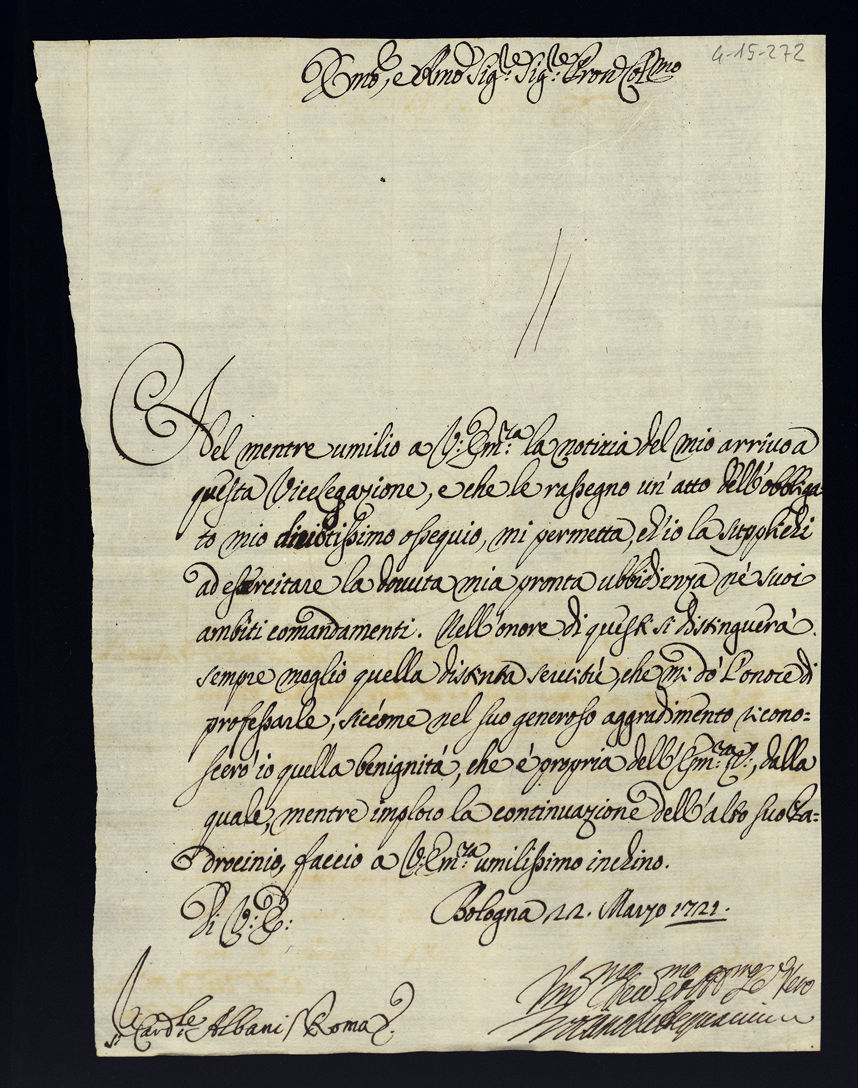 4-15-272
Emõ, e Rmõ Sig:re Sig:re Pron Colmo
Nel mentre umilio a V: Em:za la notizia del mio arrivo a
questa Vicelegazione, e che le rassegno un' atto dell'obbliga-
to mio divotissimo ossequio, mi permetta, ch'io la supplichi
ad essercitare la dovuta mia pronta ubbidienza ne' suoi
ambiti comandamenti. Nell'onore di questi si distinguerà
sempre meglio quella distinta servitù, che mi dò l'onore di
professarle, siccome nel suo generoso aggradimento ricono=
scerò io quella benignità, che è propria dell' Em:za V:, dalla
quale, mentre imploro la continuazione dell' alto suo Pa=
drocinio, faccio a V: Em:za umilissimo inchino.
Di V: E: Bologna 22. Marzo 1721.
Sr Card:le Albani / Roma